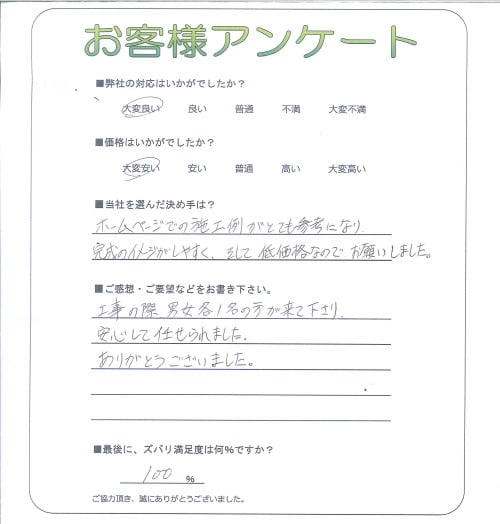 お客様アンケート
■弊社の対応はいかがでしたか？
大変良い 良い 普通 不満 大変不満
■価格はいかがでしたか？
大変安い 安い 普通 高い 大変高い
■当社を選んだ決め手は？
ホームページでの施工例がとても参考になり、
完成のイメージがしやすく、そして低価格なのでお願いしました。
■ご感想・ご要望などをお書き下さい。
工事の際、男女各1名の方が来て下さり、
安心して任せられました。
ありがとうございました。
■最後に、ズバリ満足度は何%ですか？
100 %
ご協力頂き、誠にありがとうございました。